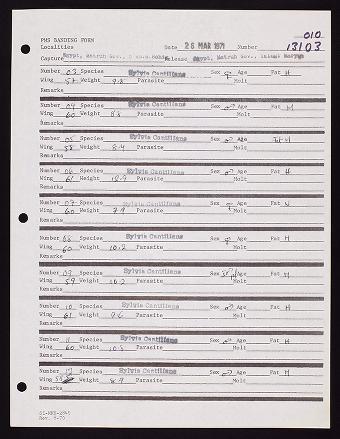 010
PMS BANDING FORM
Localities Date 26 MAR 1971 Number 13103
Capture Egypt, Matruh Gov., Release Egypt, Matruh Gov.,
Number 03 Species Sylvia Cantillans Sex ♀ Age Fat H
Wing 57 Weight 9.8 Parasite Molt
Remarks
Number 04 Species Sylvia Cantillans Sex ♂ Age Fat M
Wing 60 Weight 8.8 Parasite Molt
Remarks
Number 05 Species Sylvia Cantillans Sex ♂ Age
Wing 58 Weight 8.4 Parasite Molt
Remarks
Number 06 Species Sylvia Cantillans Sex ♂ Age Fat H
Wing 61 Weight Parasite Molt
Remarks
Number 07 Species Sylvia Cantillans Sex ♀ Age Fat
Wing 60 Weight 7.9 Parasite Molt
Remarks
Number 08 Species Sylvia Cantillans Sex ♀ Age Fat M
Wing 60 Weight 10.2 Parasite Molt
Remarks
Number 09 Species Sylvia Cantillans Sex Age Fat M
Wing 59 Weight 10.2 Parasite Molt
Remarks
Number 10 Species Sylvia Cantillans Sex ♂ Age Fat H
Wing 61 Weight 9.6 Parasite Molt
Remarks
Number 11 Species Sylvia Cantillans Sex ♂ Age Fat M
Wing 60 Weight 10.5 Parasite Molt
Remarks
Number 12 Species Sylvia Cantillans Sex ♂ Age Fat H
Wing 58 Weight 8.9 Parasite Molt
Remarks
SI-MNH-2845
Rev. 5-70